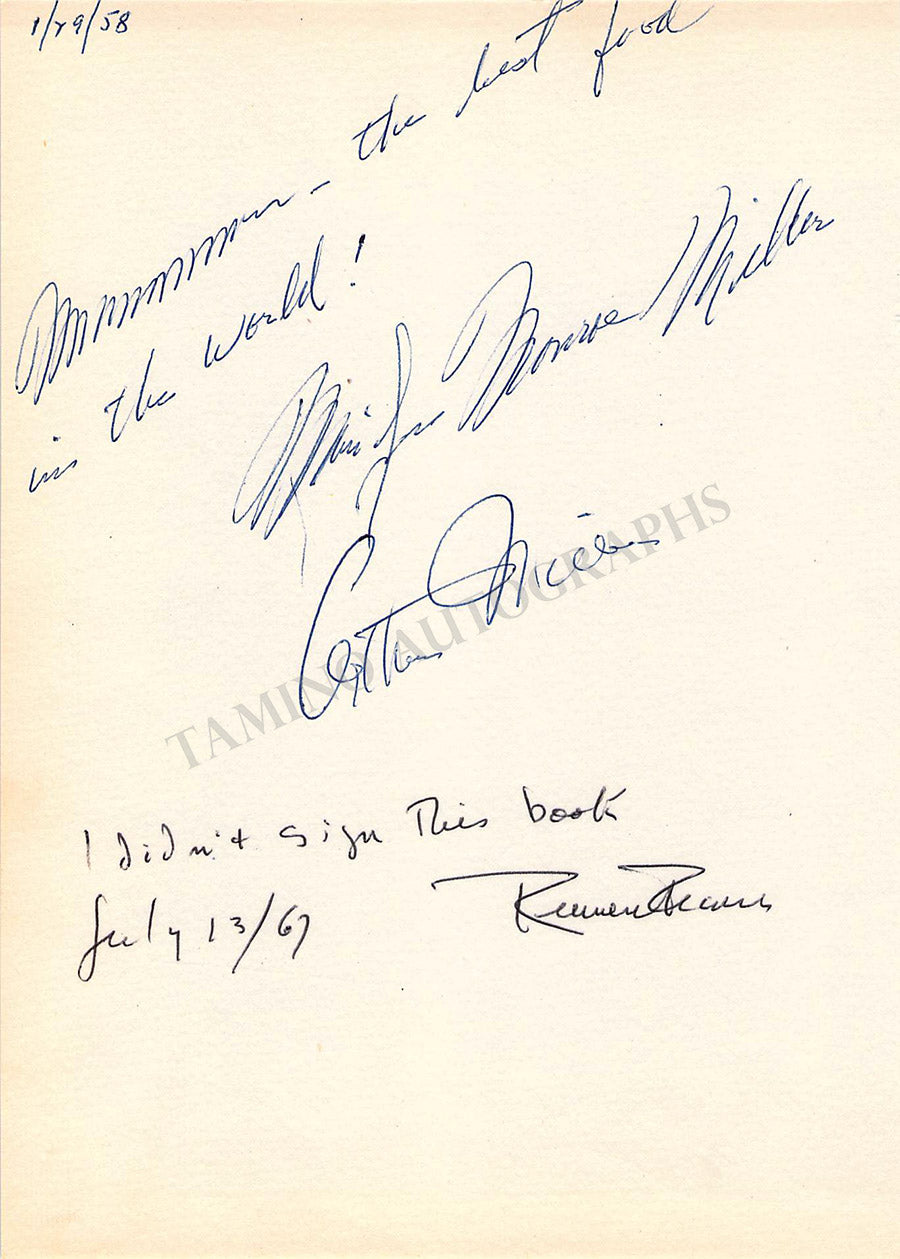 1/29/58
Mmmmmmmm – the best food
in the world!
Marilyn Monroe Miller
Arthur Miller
TAMINO AUTOGRAPHS
I didn't sign This book
July 13/67